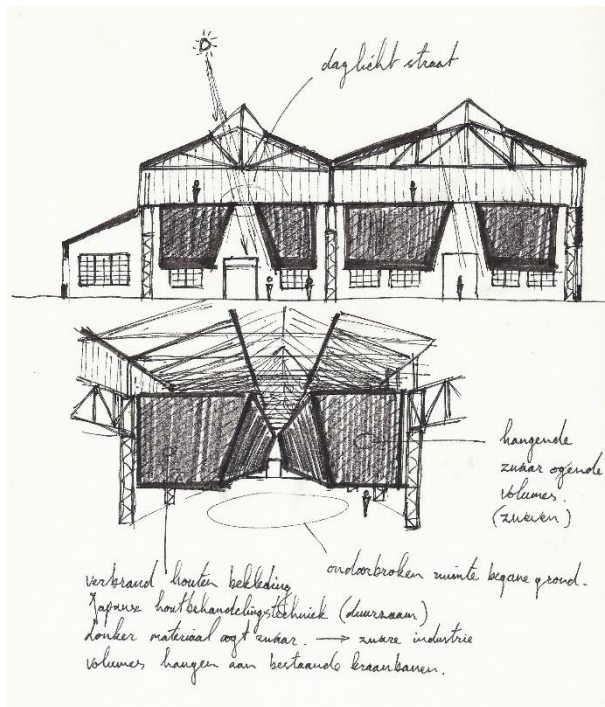 daglicht straat
hangende
zwaar ogende
volumes.
(zweven)
ondoorbroken ruimte begane grond.
verbrand houten bekleding
Japanse houtbehandelingstechniek (duurzaam)
donker materiaal oogt zwaar. → zware industrie
volumes hangen aan bestaande kraanbanen.